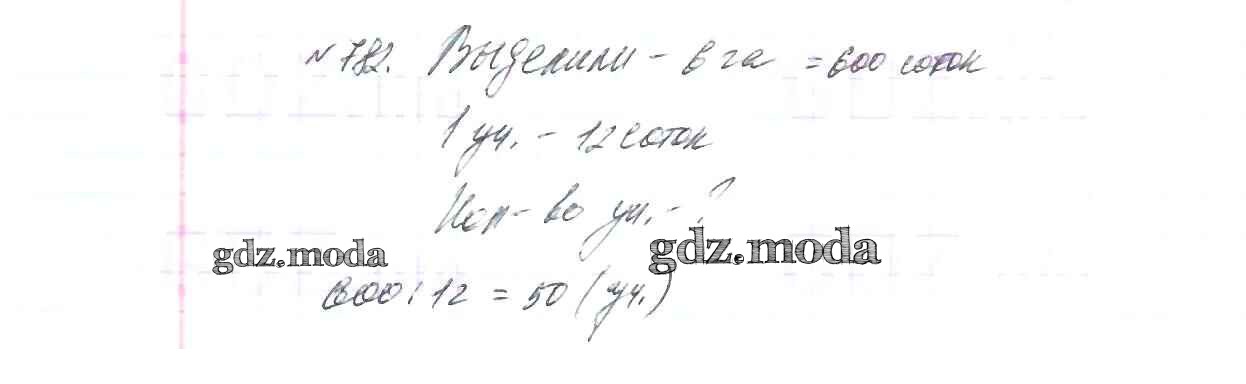 №782. Выделили - 6 га = 600 соток
1 уч. - 12 соток
Кол-во уч. - ?
gdz.moda gdz.moda
600 : 12 = 50 (уч.)